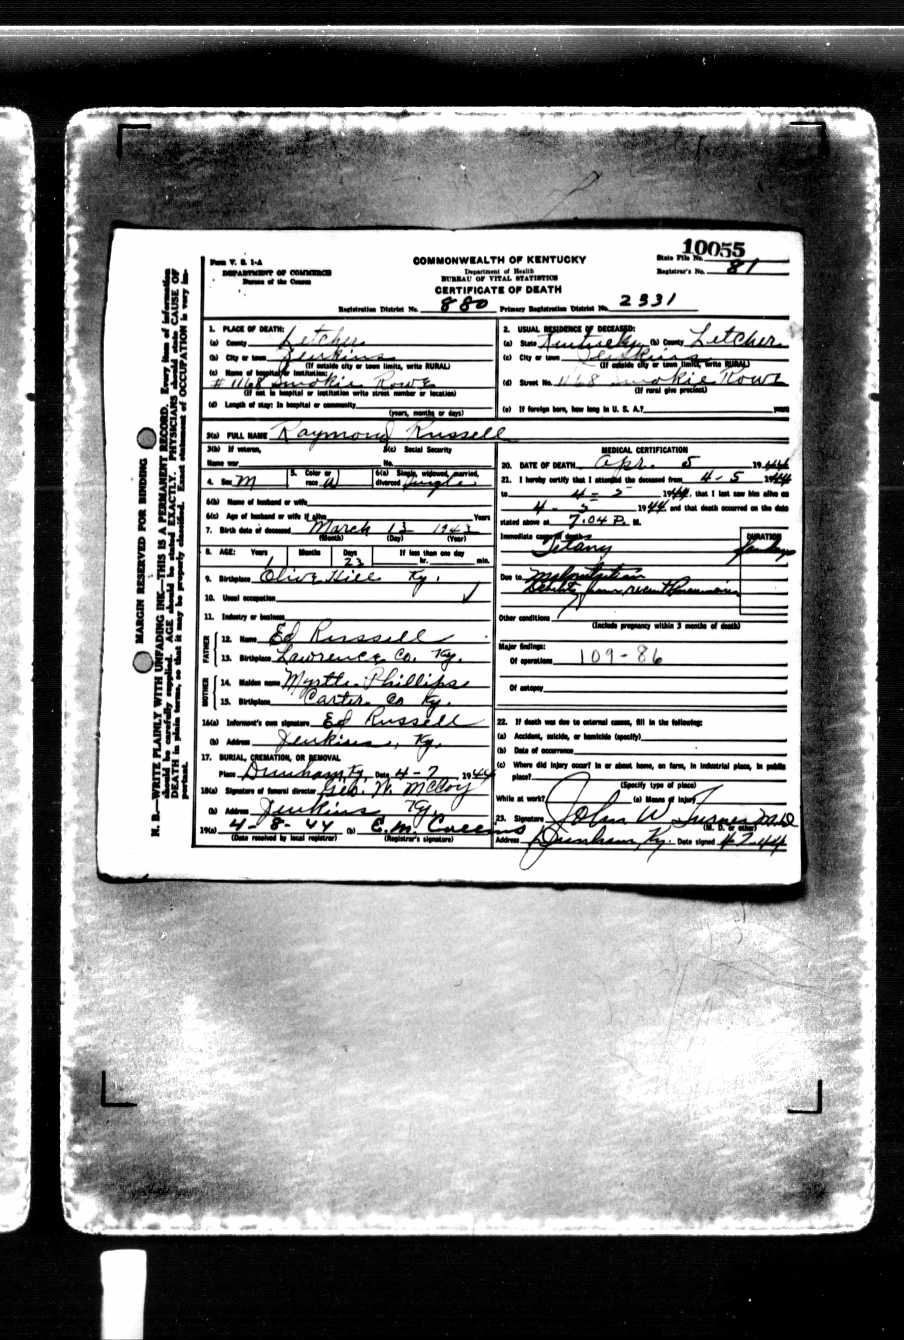 10055
Form V. S. 1-A
COMMONWEALTH OF KENTUCKY
State File No.
DEPARTMENT OF COMMERCE
Department of Health
Registrar's No. 81
Bureau of the Census
BUREAU OF VITAL STATISTICS
CERTIFICATE OF DEATH
Registration District No. 880 Primary Registration District No. 2331
MARGIN RESERVED FOR BINDING
N. B.—WRITE PLAINLY WITH UNFADING INK—THIS IS A PERMANENT RECORD. Every item of information
should be carefully supplied. AGE should be stated EXACTLY. PHYSICIANS should state CAUSE OF
DEATH in plain terms, so that it may be properly classified. Exact statement of OCCUPATION is very im-
portant.
1. PLACE OF DEATH:
(a) County Letcher
(b) City or town Jenkins
(If outside city or town limits, write RURAL)
(c) Name of hospital or institution:
#1168 Smokie Rowe
(If not in hospital or institution write street number or location)
(d) Length of stay: In hospital or community
(years, months or days)
2. USUAL RESIDENCE OF DECEASED:
(a) State Kentucky (b) County Letcher
(c) City or town Jenkins
(If outside city or town limits, write RURAL)
(d) Street No. 1168 Smokie Rowe
(If rural give precinct)
(e) If foreign born, how long in U. S. A.? years
3(a) FULL NAME Raymond Russell
3(b) If veteran, 3(c) Social Security
Name war No.
4. Sex M 5. Color or race W 6(a) Single, widowed, married, divorced Single
6(b) Name of husband or wife
6(c) Age of husband or wife if alive Years
7. Birth date of deceased March 13 1943
(Month) (Day) (Year)
8. AGE: Years Months Days If less than one day
1 23 hr. min.
9. Birthplace Olive Hill Ky.
10. Usual occupation
11. Industry or business
FATHER
12. Name Ed Russell
13. Birthplace Lawrence Co. Ky.
MOTHER
14. Maiden name Myrtle Phillips
15. Birthplace Carter Co Ky.
16(a) Informant's own signature Ed Russell
(b) Address Jenkins, Ky.
17. BURIAL, CREMATION, OR REMOVAL
Place Dunham, Ky. Date 4-7 1944
18(a) Signature of funeral director Geo. W. McCoy
(b) Address Jenkins Ky.
19(a) 4-8-44 (b) E. M.
(Date received by local registrar) (Registrar's signature)
MEDICAL CERTIFICATION
20. DATE OF DEATH Apr. 5 1944
21. I hereby certify that I attended the deceased from 4-5 1944
to 4-5 1944, that I last saw him alive on
4-5 1944 and that death occurred on the date
stated above at 7:04 P. M.
Immediate cause of death DURATION
Tetany few days
Due to Malnutrition
Debility from recent Pneumonia
Other conditions
(Include pregnancy within 3 months of death)
Major findings:
Of operations 109-86
Of autopsy
22. If death was due to external causes, fill in the following:
(a) Accident, suicide, or homicide (specify)
(b) Date of occurrence
(c) Where did injury occur? In or about home, on farm, in industrial place, in public
place?
(Specify type of place)
While at work? (e) Means of injury
23. Signature John W Turner MD
(M. D. or other)
Address Dunham, Ky. Date signed 4-7-44